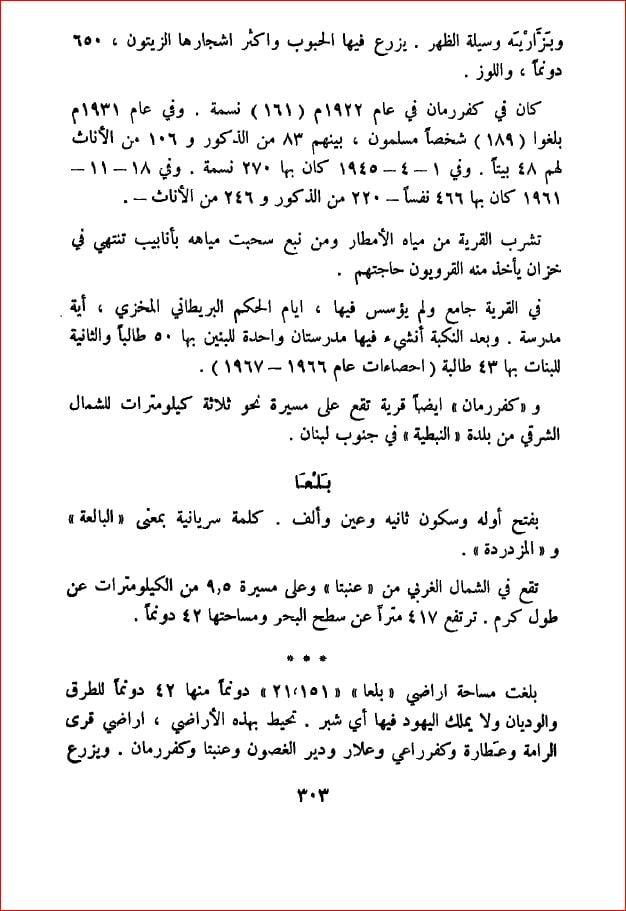 وبَزَّارْيَه وسيلة الظهر . يزرع فيها الحبوب واكثر اشجارها الزيتون ، ٦٥٠
دونماً ، واللوز .
كان في كفررمان في عام ١٩٢٢م (١٦١) نسمة . وفي عام ١٩٣١م
بلغوا (١٨٩) شخصاً مسلمون ، بينهم ٨٣ من الذكور و ١٠٦ من الأناث
لهم ٤٨ بيتاً . وفي ١ – ٤ – ١٩٤٥ كان بها ٢٧٠ نسمة . وفي ١٨ – ١١ –
١٩٦١ كان بها ٤٦٦ نفساً – ٢٢٠ من الذكور و ٢٤٦ من الأناث – .
تشرب القرية من مياه الأمطار ومن نبع سحبت مياهه بأنابيب تنتهي في
خزان يأخذ منه القرويون حاجتهم .
في القرية جامع ولم يؤسس فيها ، ايام الحكم البريطاني المخزي ، أية
مدرسة . وبعد النكبة أنشيء فيها مدرستان واحدة للبنين بها ٥٠ طالباً والثانية
للبنات بها ٤٣ طالبة (احصاءات عام ١٩٦٦ – ١٩٦٧) .
و «كفررمان» ايضاً قرية تقع على مسيرة نحو ثلاثة كيلومترات للشمال
الشرقي من بلدة «النبطية» في جنوب لبنان .
بَلْعَا
بفتح أوله وسكون ثانيه وعين وألف . كلمة سريانية بمعنى «البالعة»
و «المزدردة» .
تقع في الشمال الغربي من «عنبتا» وعلى مسيرة ٩,٥ من الكيلومترات عن
طول كرم . ترتفع ٤١٧ متراً عن سطح البحر ومساحتها ٤٢ دونماً .
* * *
بلغت مساحة اراضي «بلعا» «٢١،١٥١» دونماً منها ٤٢ دونماً للطرق
والوديان ولا يملك اليهود فيها أي شبر . تحيط بهذه الأراضي ، اراضي قرى
الرامة وعَطارة وكفرراعي وعلار ودير الغصون وعنبتا وكفررمان . ويزرع
٣٠٣